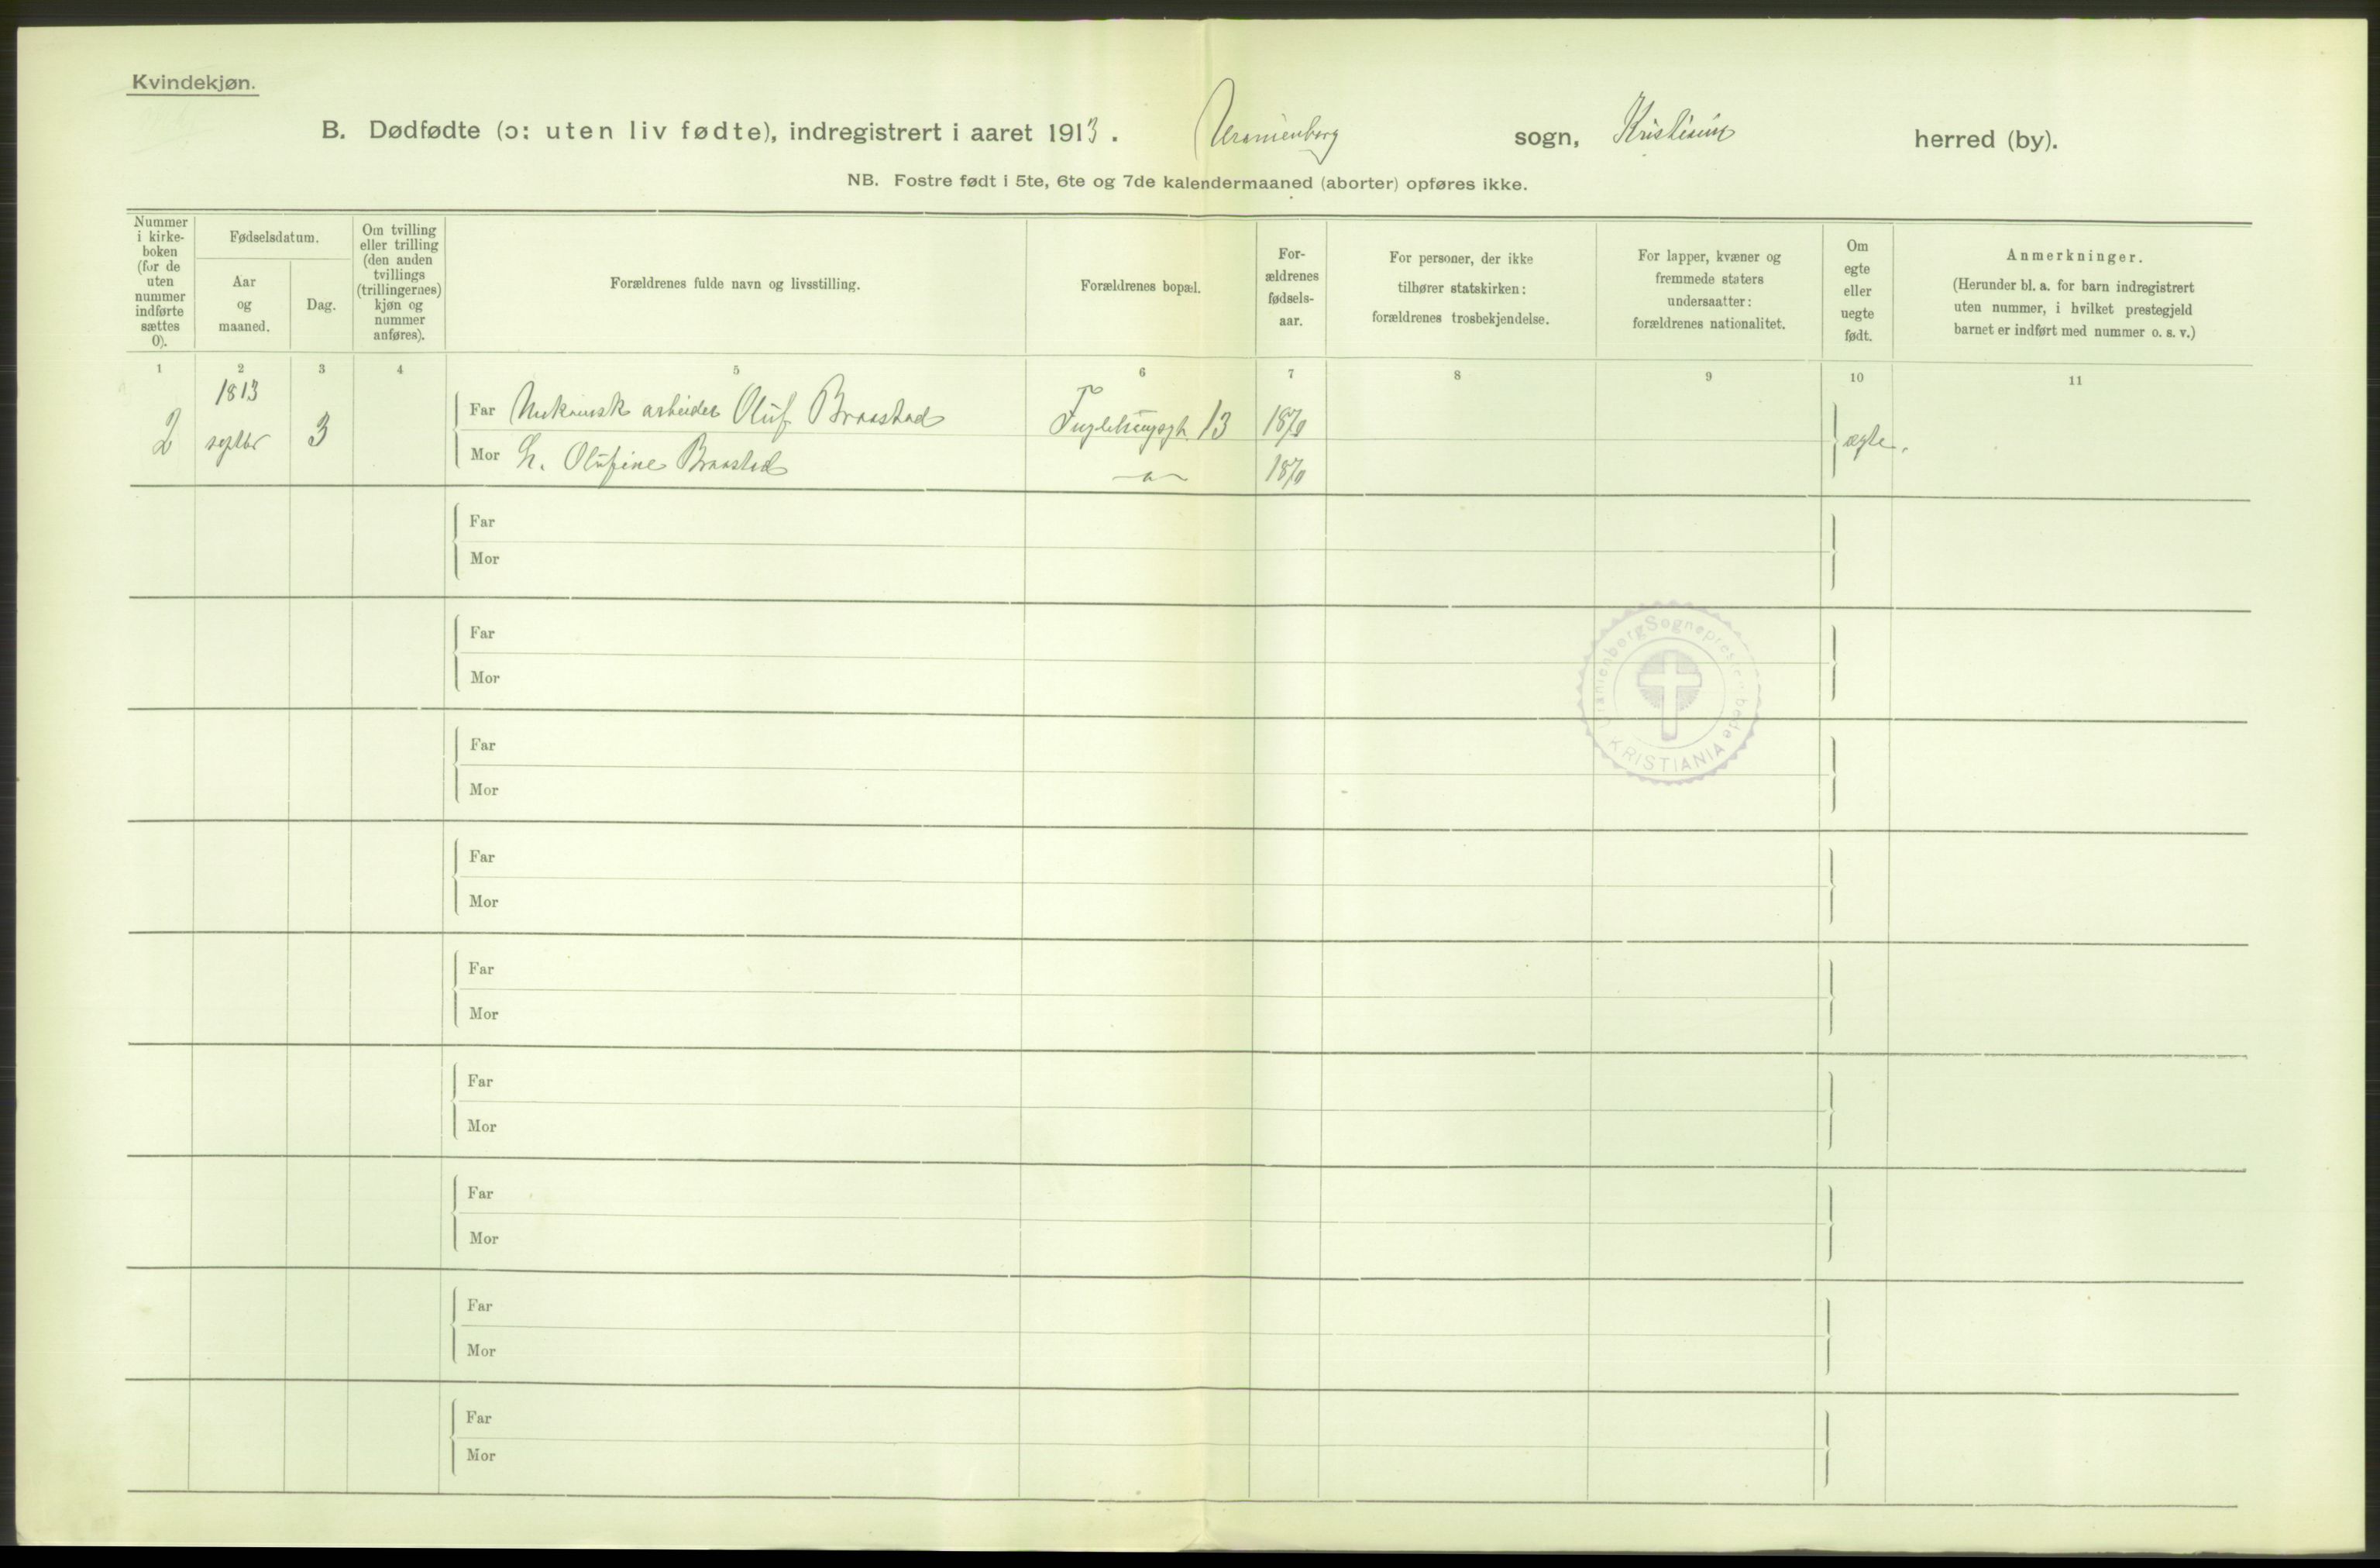 Kvindekjøn.
B. Dødfødte (ɔ: uten liv fødte), indregistrert i aaret 1913. Uranienborg sogn, Kristiania herred (by).
NB. Fostre født i 5te, 6te og 7de kalendermaaned (aborter) opføres ikke.
Nummer i kirke-boken (for de uten nummer indførte sættes 0).
Fødselsdatum.
Aar og maaned.
Dag.
Om tvilling eller trilling (den anden tvillings (trillingernes) kjøn og nummer anføres).
Forældrenes fulde navn og livsstilling.
Forældrenes bopæl.
For-ældrenes fødsels-aar.
For personer, der ikke tilhører statskirken: forældrenes trosbekjendelse.
For lapper, kvæner og fremmede staters undersaatter: forældrenes nationalitet.
Om egte eller uegte født.
Anmerkninger.
(Herunder bl. a. for barn indregistrert uten nummer, i hvilket prestegjeld barnet er indført med nummer o. s. v.)
1 2 3 4 5 6 7 8 9 10 11
1813
2 septbr 3 Far Mekanisk arbeider Oluf Braastad 13 1870 ægte.
Mor H. Olufine Braastad —"— 1870
Far
Mor
Far
Mor
Far
Mor
Far
Mor
Far
Mor
Far
Mor
Far
Mor
Far
Mor
Far
Mor
Uranienborg Sogneprestembede
KRISTIANIA